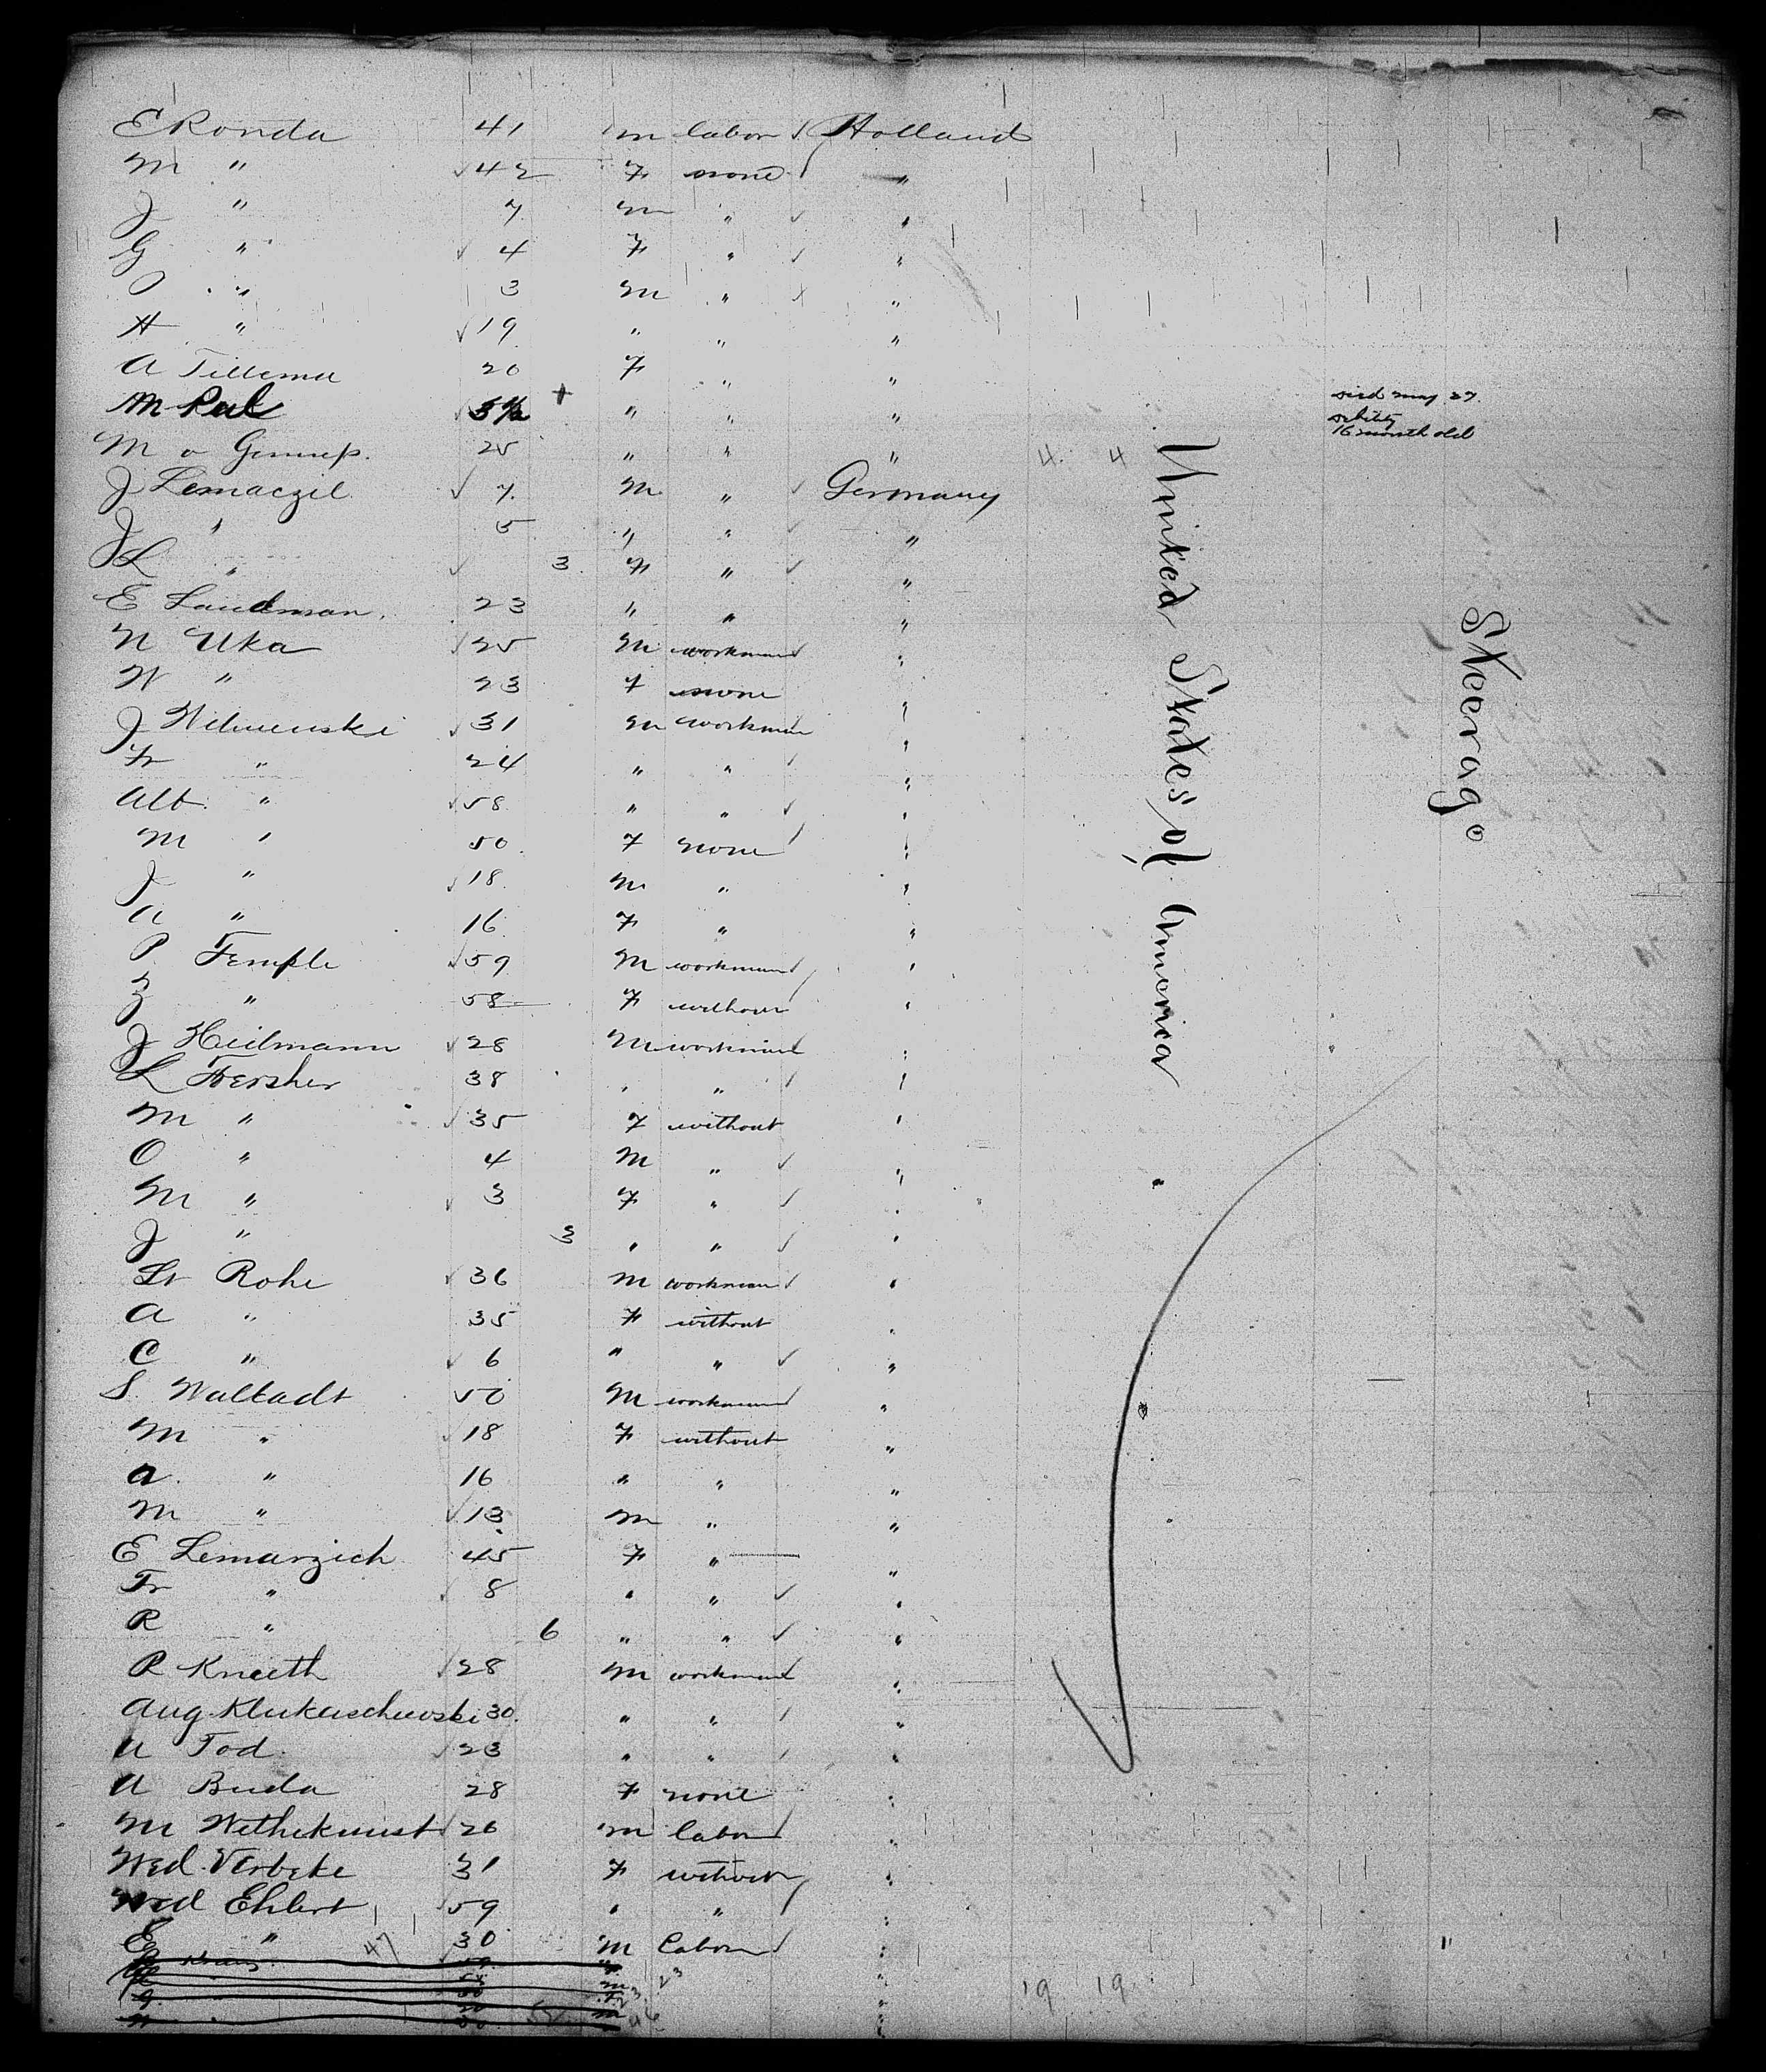 E Ronda 41 m labor Holland
M " 42 F none "
J " 7 m " "
G " 4 F " "
" 3 m " "
H " 19 " " "
A Tillema 20 F " "
M Pul " " " died may 27
debility
16 month old
M v Gennep. 25 " " " 4. 4
J Lemaczil 7. M " Germany
J " 5 " " "
L " 3 F " "
E Landman. 23 " " "
N Uka 25 M workman "
W " 23 F none "
J 31 m workman "
Fr " 24 " " "
Alb. " 58 " " "
M " 50 F none "
J " 18 M " "
A " 16 F " "
P. Temple 59 M workman "
Z " 58 F without "
J Heilmann 28 M workman "
L Fersher 38 " " "
M " 35 F without "
O " 4 M " "
M " 3 F " "
J " 3 " " "
Lr Rohe 36 M workman "
A " 35 F without "
C " 6 " " "
S. Waltadt 50 M workman "
M " 18 F without "
A. " 16 " " "
M " 13 M " "
E Lemarzich 45 F " "
Fr " 8 " " "
R " 6 " " "
P Kneeth 28 M workman "
Aug. Klukaschewski 30 " " "
A Tod 23 " " "
A Buda 28 F none "
M Wethekunst 26 M labor "
Wed. Verbeke 31 F without "
Wed Ehlert 59 " " "
E " 30 M labor "
47
19 19
United States of America
Steerage